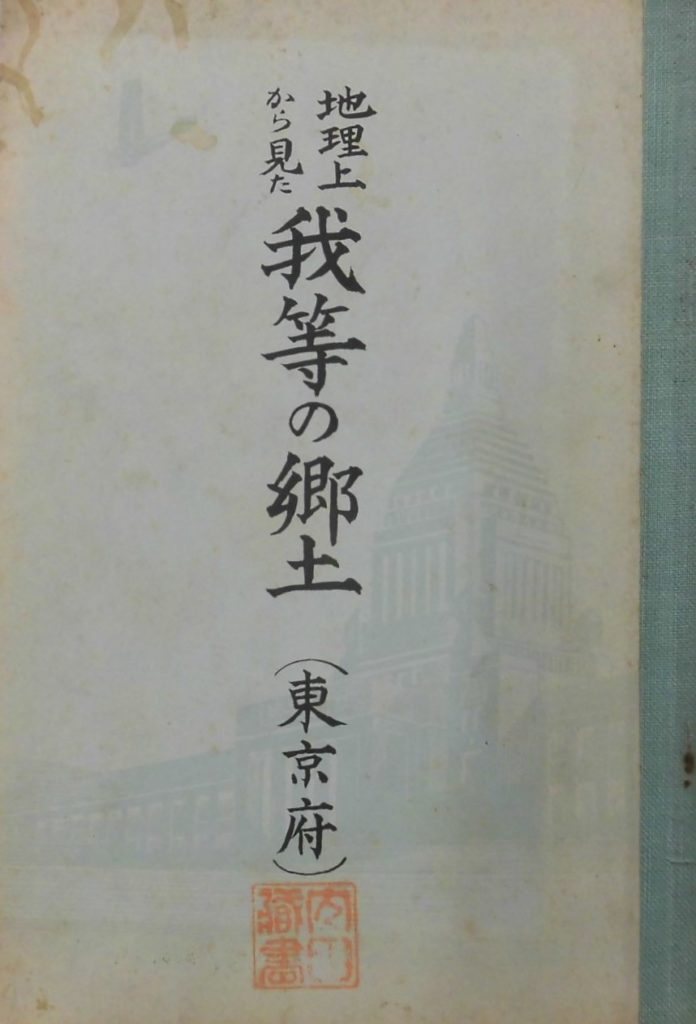 地理上
から見た
我等の郷土
（東京府）
内田
蔵書